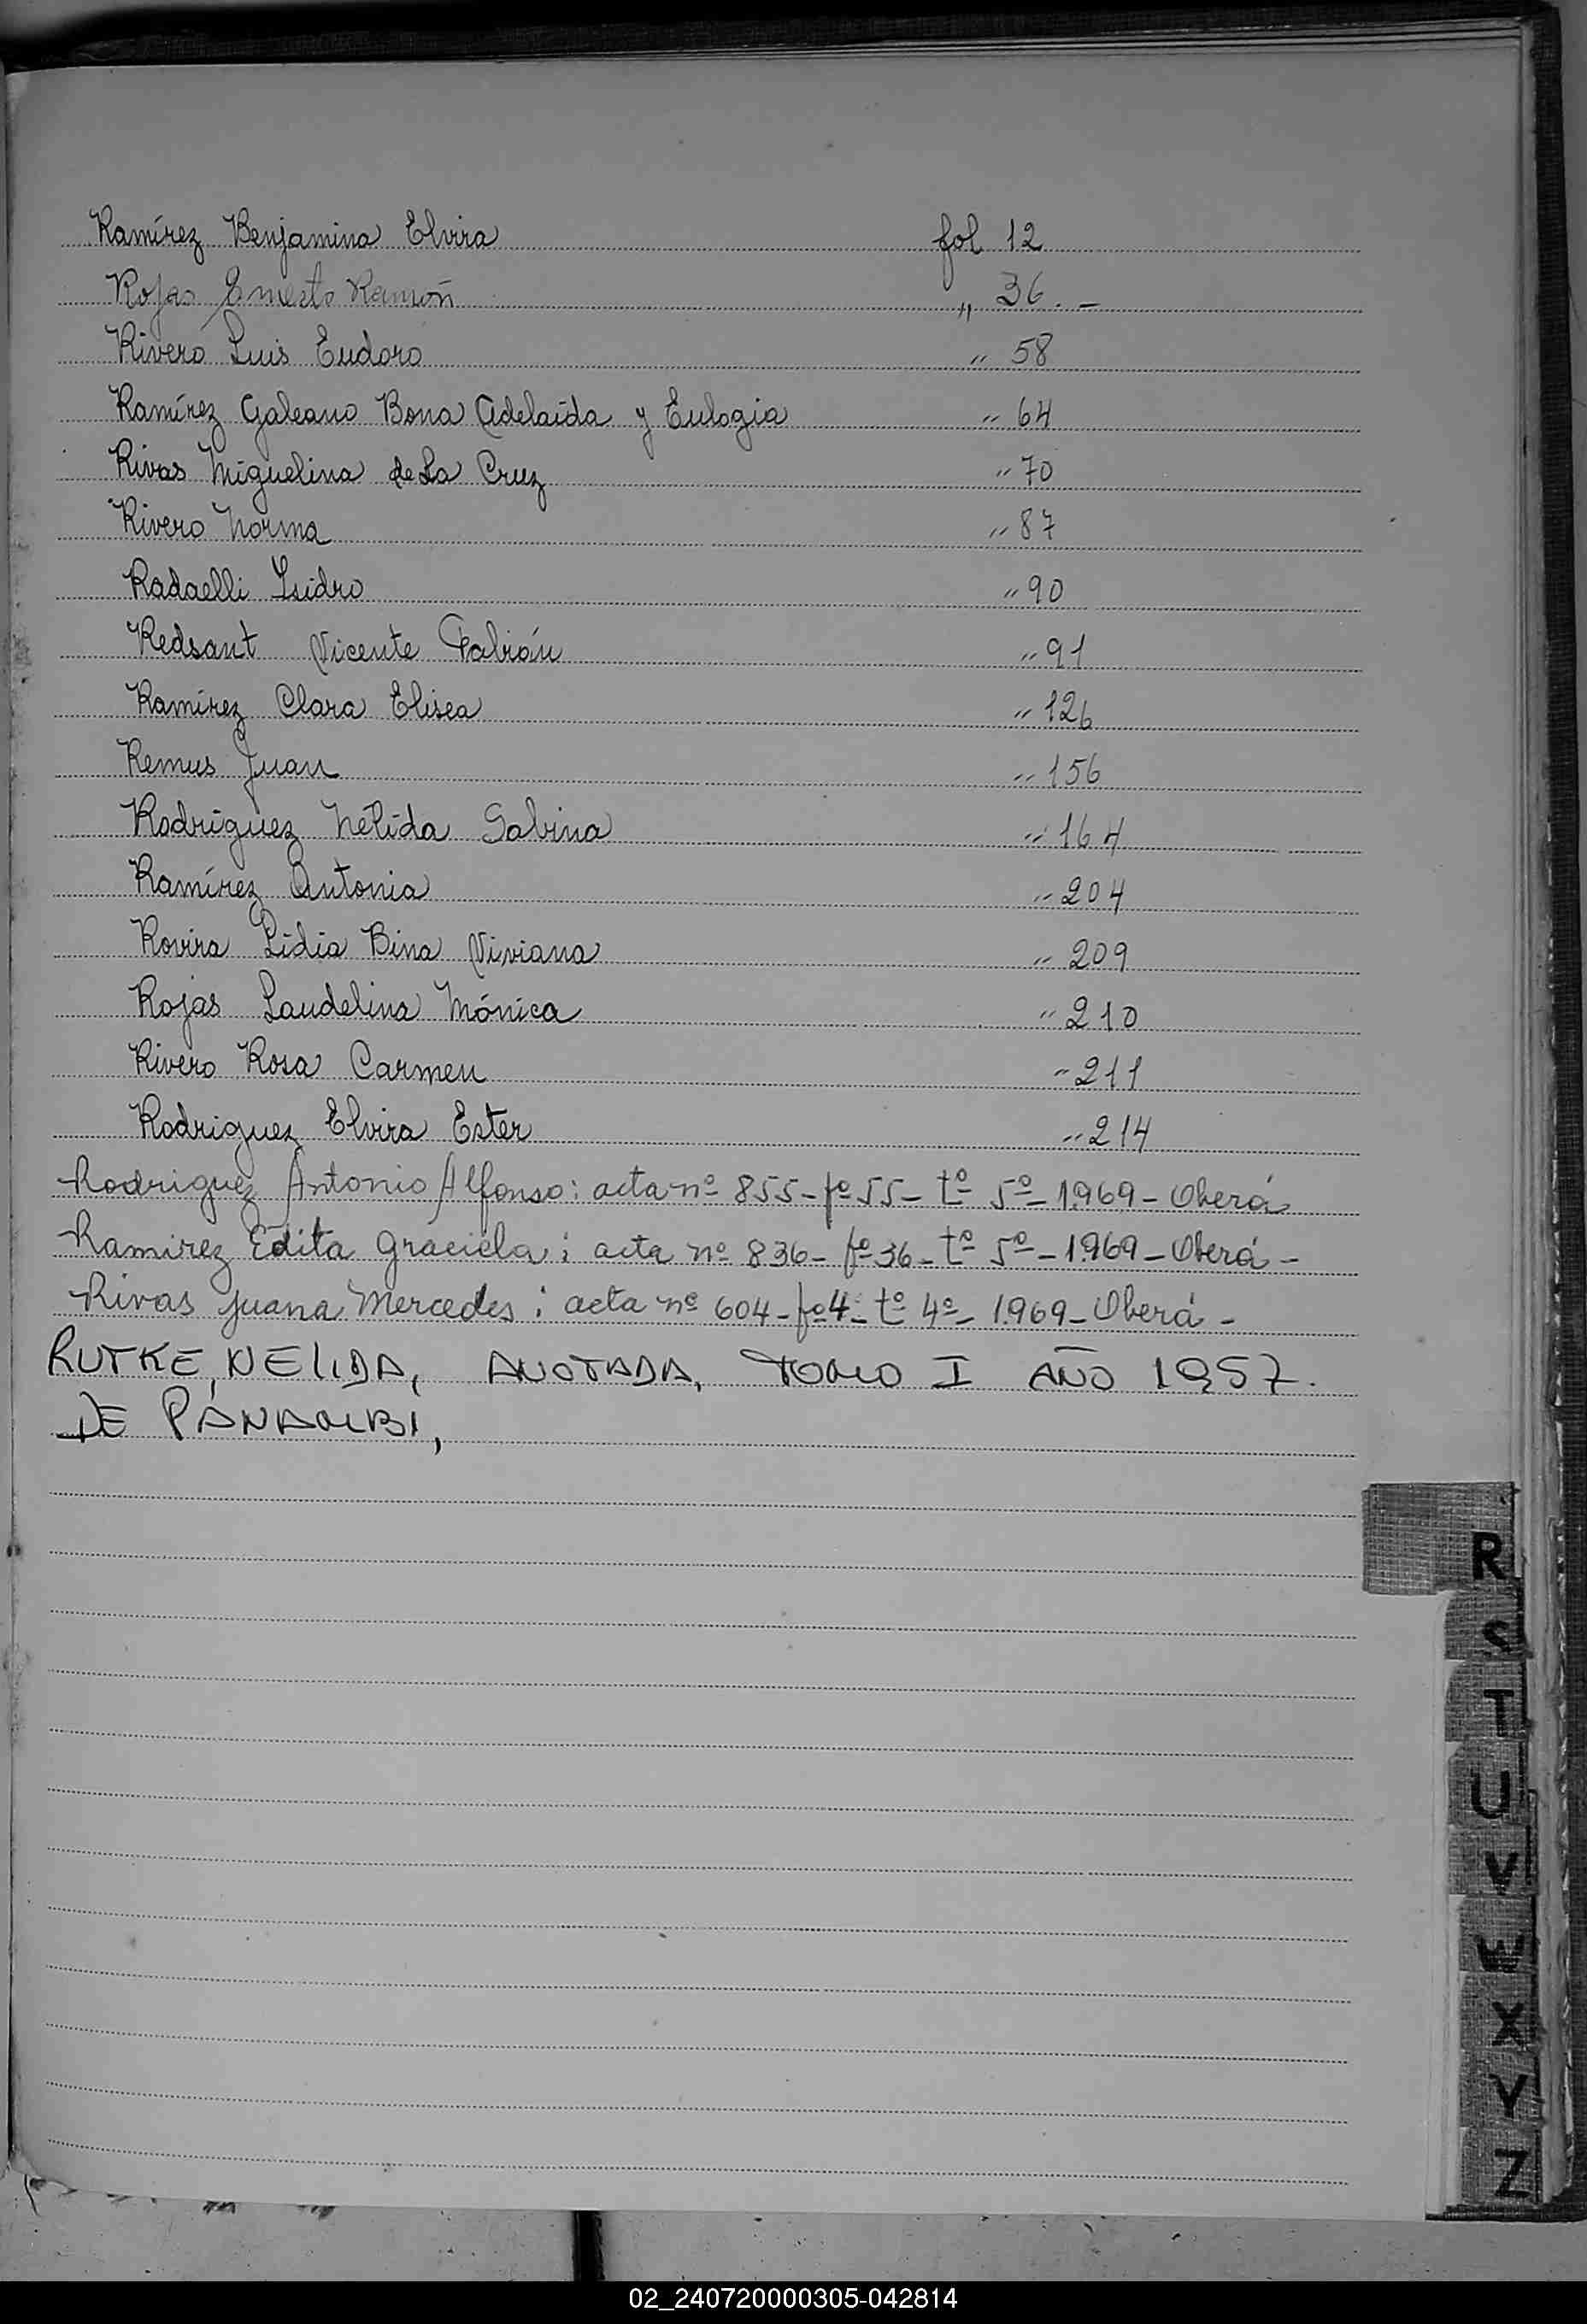 Ramírez Benjamina Elvira fol 12
Rojas Ernesto Ramón " 36.-
Rivero Luis Eudoro " 58
Ramírez Galeano Bona Adelaida y Eulogia " 64
Rivas Miguelina de La Cruz " 70
Rivero Norma " 87
Radaelli Isidro " 90
Redsant Vicente Fabián " 91
Ramírez Clara Elisea " 126
Remus Juan " 156
Rodríguez Nélida Sabina " 164
Ramírez Antonia " 204
Rovira Lidia Bina Viviana " 209
Rojas Laudelina Mónica " 210
Rivero Rosa Carmen " 211
Rodriguez Elvira Ester " 214
Rodriguez Antonio Alfonso: acta nº 855-fº 55- tº 5º- 1969- Oberá
Ramirez Edita Graciela: acta nº 836- fº 36- tº 5º- 1.969- Oberá-
Rivas Juana Mercedes: acta nº 604-fº 4- tº 4º- 1969- Oberá-
RUTKE, NELIDA, ANOTADA, TOMO I AÑO 1957.
DE PANAMBI,
R
S
T
U
V
W
X
Y
Z
02_240720000305-042814